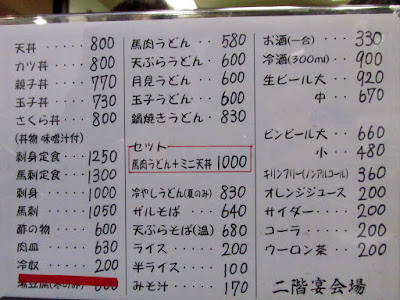 天丼 ‥‥‥ 800
カツ丼 ‥‥ 800
親子丼 ‥‥ 770
玉子丼 ‥‥ 730
さくら丼 ‥‥ 800
(丼物 味噌汁付)
刺身定食 ‥‥ 1250
馬刺定食 ‥‥ 1300
刺身 ‥‥‥ 1000
馬刺 ‥‥‥ 1050
酢の物 ‥‥ 600
肉皿 ‥‥‥ 630
冷奴 ‥‥‥ 200
湯豆腐(冬のみ) 600
馬肉うどん ‥ 580
天ぷらうどん ‥ 600
月見うどん ‥ 600
玉子うどん ‥ 600
鍋焼きうどん ‥ 830
セット
馬肉うどん+ミニ天丼 1000
冷やしうどん(夏のみ) 830
ザルそば ‥‥ 640
天ぷらそば(温) 680
ライス ‥‥‥ 200
半ライス ‥‥ 100
みそ汁 ‥‥‥ 170
お酒(一合) ‥ 330
冷酒(300ml) ‥ 900
生ビール大 ‥ 920
中 ‥ 670
ビンビール大 ‥ 660
小 ‥ 480
キリンフリー(ノンアルコール) 360
オレンジジュース 200
サイダー ‥‥ 200
コーラ ‥‥‥ 200
ウーロン茶 ‥ 200
二階宴会場